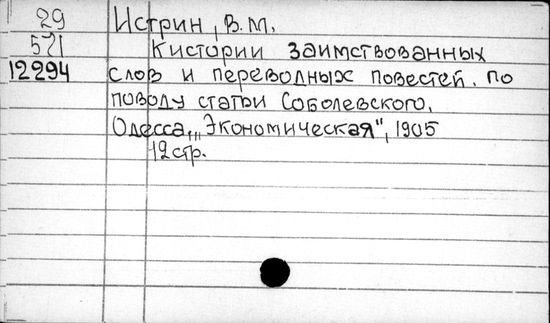 29 Истрин, В.М.
571 К истории заимствованных
12294 слов и переводных повестей. по
поводу статьи Соболевского.
Одесса, „Экономическая", 1905
12стр.